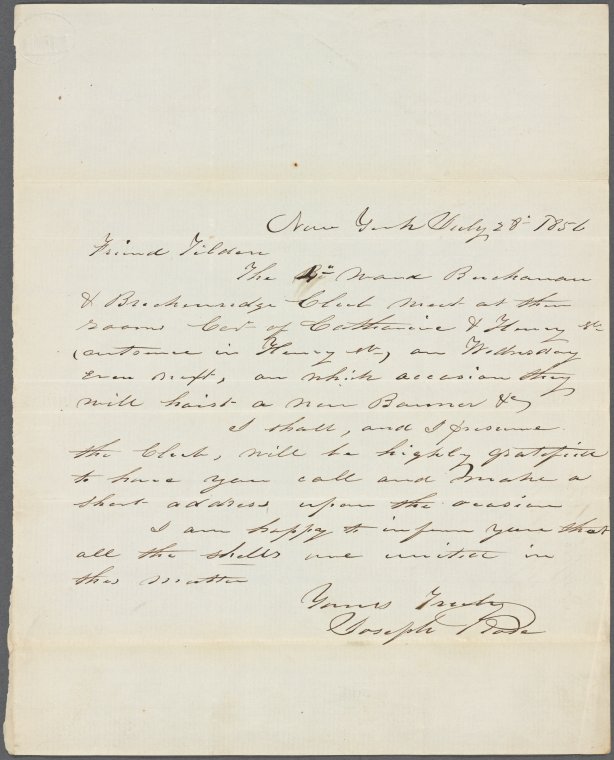 New York July 28th 1856
Friend Tilden
The ward Buchanan
& Breckenridge Club meet at their
rooms Cor of Catharine & Henry Sts
(entrance in Henry st, on Wednesday
Even next, on which occasion they
will hoist a new Banner &c
I shall, and I presume
the Club, will be highly gratified
to have you call and make a
short address upon the ocasion
I am happy to inform you that
all the shells are united in
this matter
Yours Truly
Joseph Rose